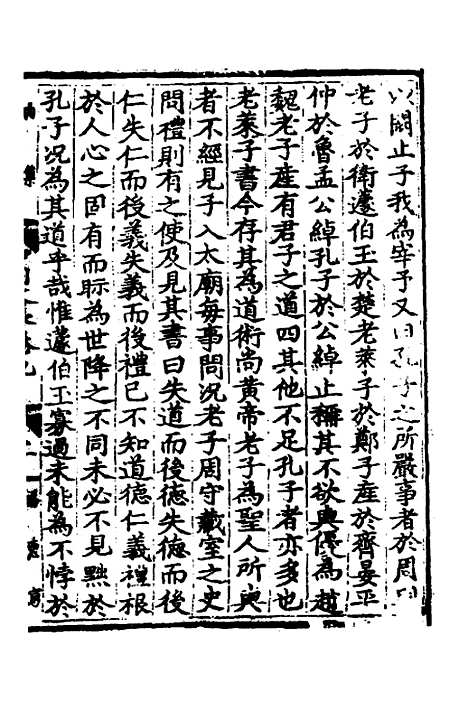 以闞止子我為宰予又曰孔子之所嚴事者於周則
老子於衛蘧伯玉於楚老萊子於鄭子產於齊晏平
仲於魯孟公綽孔子於公綽止稱其不欲與優為趙
魏老子產有君子之道四其他不足孔子者亦多也
老萊子書今存其為道術尚黃帝老子為聖人所與
者不經見子入太廟每事問況老子周守藏室之史
問禮則有之使及見其書曰失道而後德失德而後
仁失仁而後義失義而後禮已不知道德仁義禮根
於人心之固有而眎為世降之不同未必不見黜於
孔子況為其道乎哉惟蘧伯玉寡過未能為不悖於